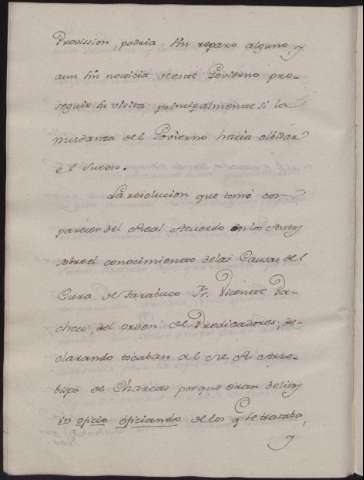 Provission, podria sin reparo alguno, y
aun sin noticia de este Govierno pro-
seguir su visita principalmente si la
mudanza del Govierno hacia olbidar
el suceso.
La resolucion que tomé con
parecer del Real Acuerdo en los Autos
sobre el conocimiento de las Causas del
Cura de Tarabuco Fr. Vicente Pa-
checo, del orden de Predicadores, de-
clarando tocaban al Arzo-
bispo de Charcas porque eran de
oficio oficiando de los q. se trataba,
y